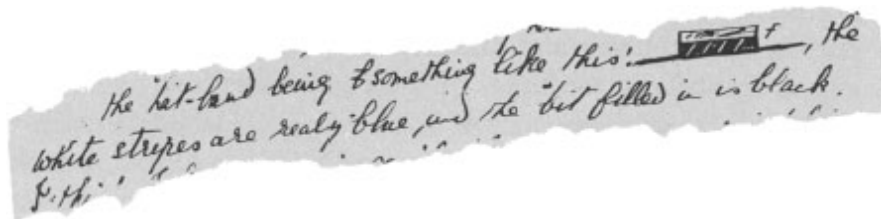 the hat-band being something like this: f, the
white stripes are realy blue, and the bit filled in is black.